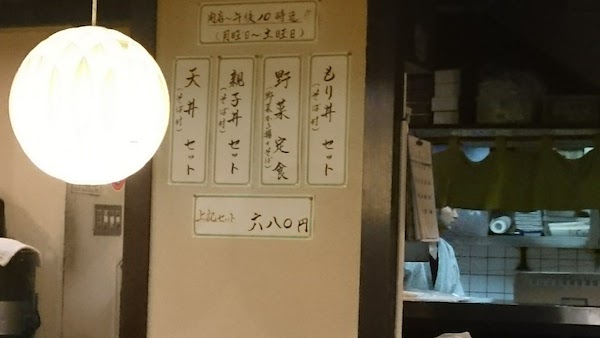 開店〜午後10時迄
(月曜日〜土曜日)
もり丼セット
(そば付)
野菜定食
(野菜かき揚・そば)
親子丼セット
(そば付)
天丼セット
(そば付)
上記セット 六八〇円